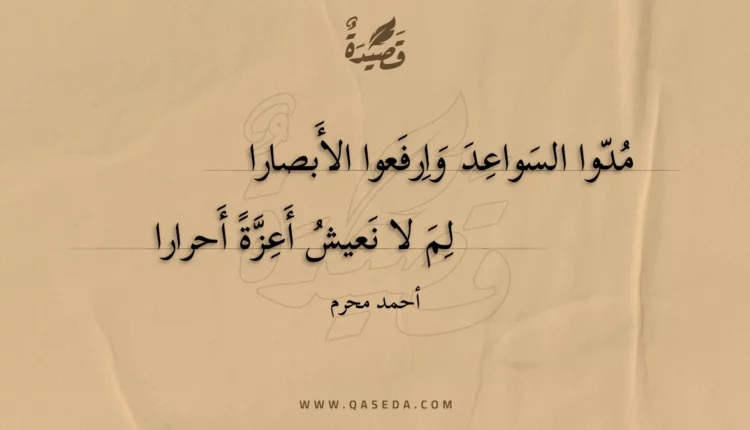 قَصِيدَةٌ
مُدّوا السَواعِدَ وَاِرفَعوا الأَبصارا
لِمَ لا نَعيشُ أَعِزَّةً أَحرارا
أحمد محرم
WWW.QASEDA.COM